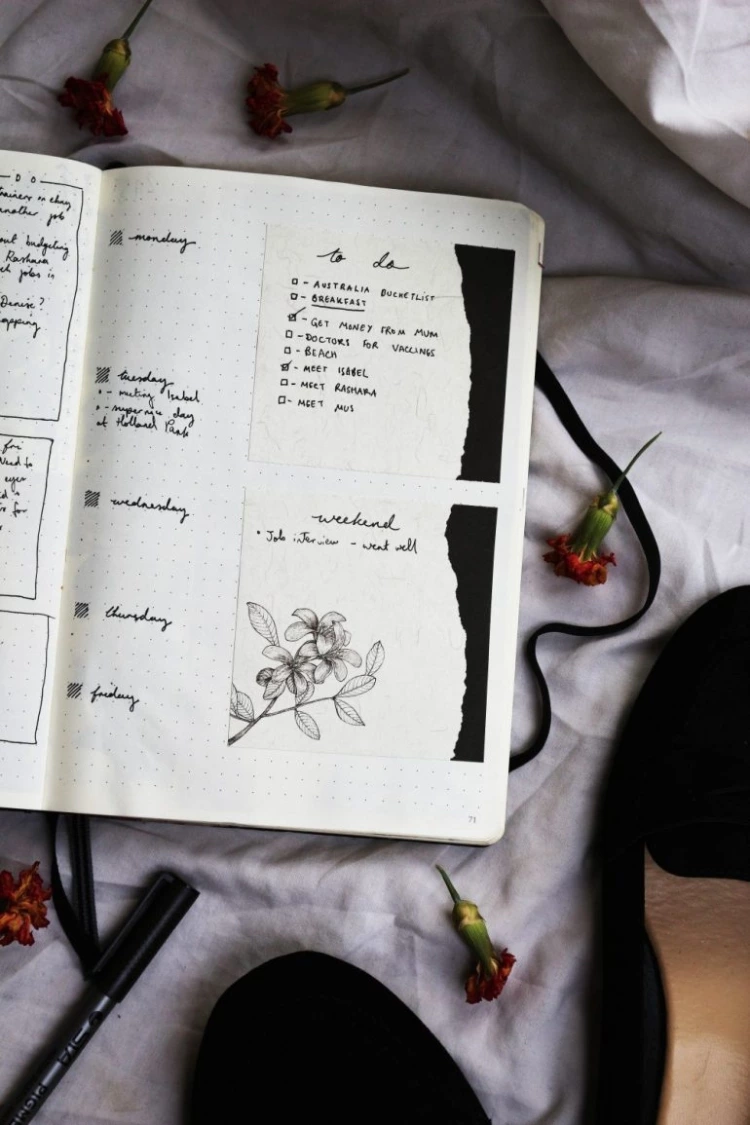 trainers on ebay
another job
out budgeting
Rashara
jobs in
Denise?
fri
need to
for
monday
tuesday
- meeting Isabel
- super nice day
at Holland Park
wednesday
thursday
friday
to do
- AUSTRALIA BUCKETLIST
- BREAKFAST
- GET MONEY FROM MUM
- DOCTORS FOR VACCINGS
- BEACH
- MEET ISABEL
- MEET RASHARA
- MEET MUS
weekend
• Job interview - went well
71